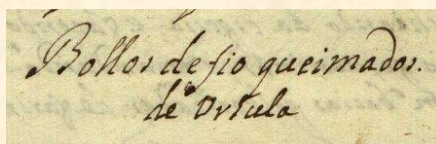 Bollos de fio queimados.
de Ursula